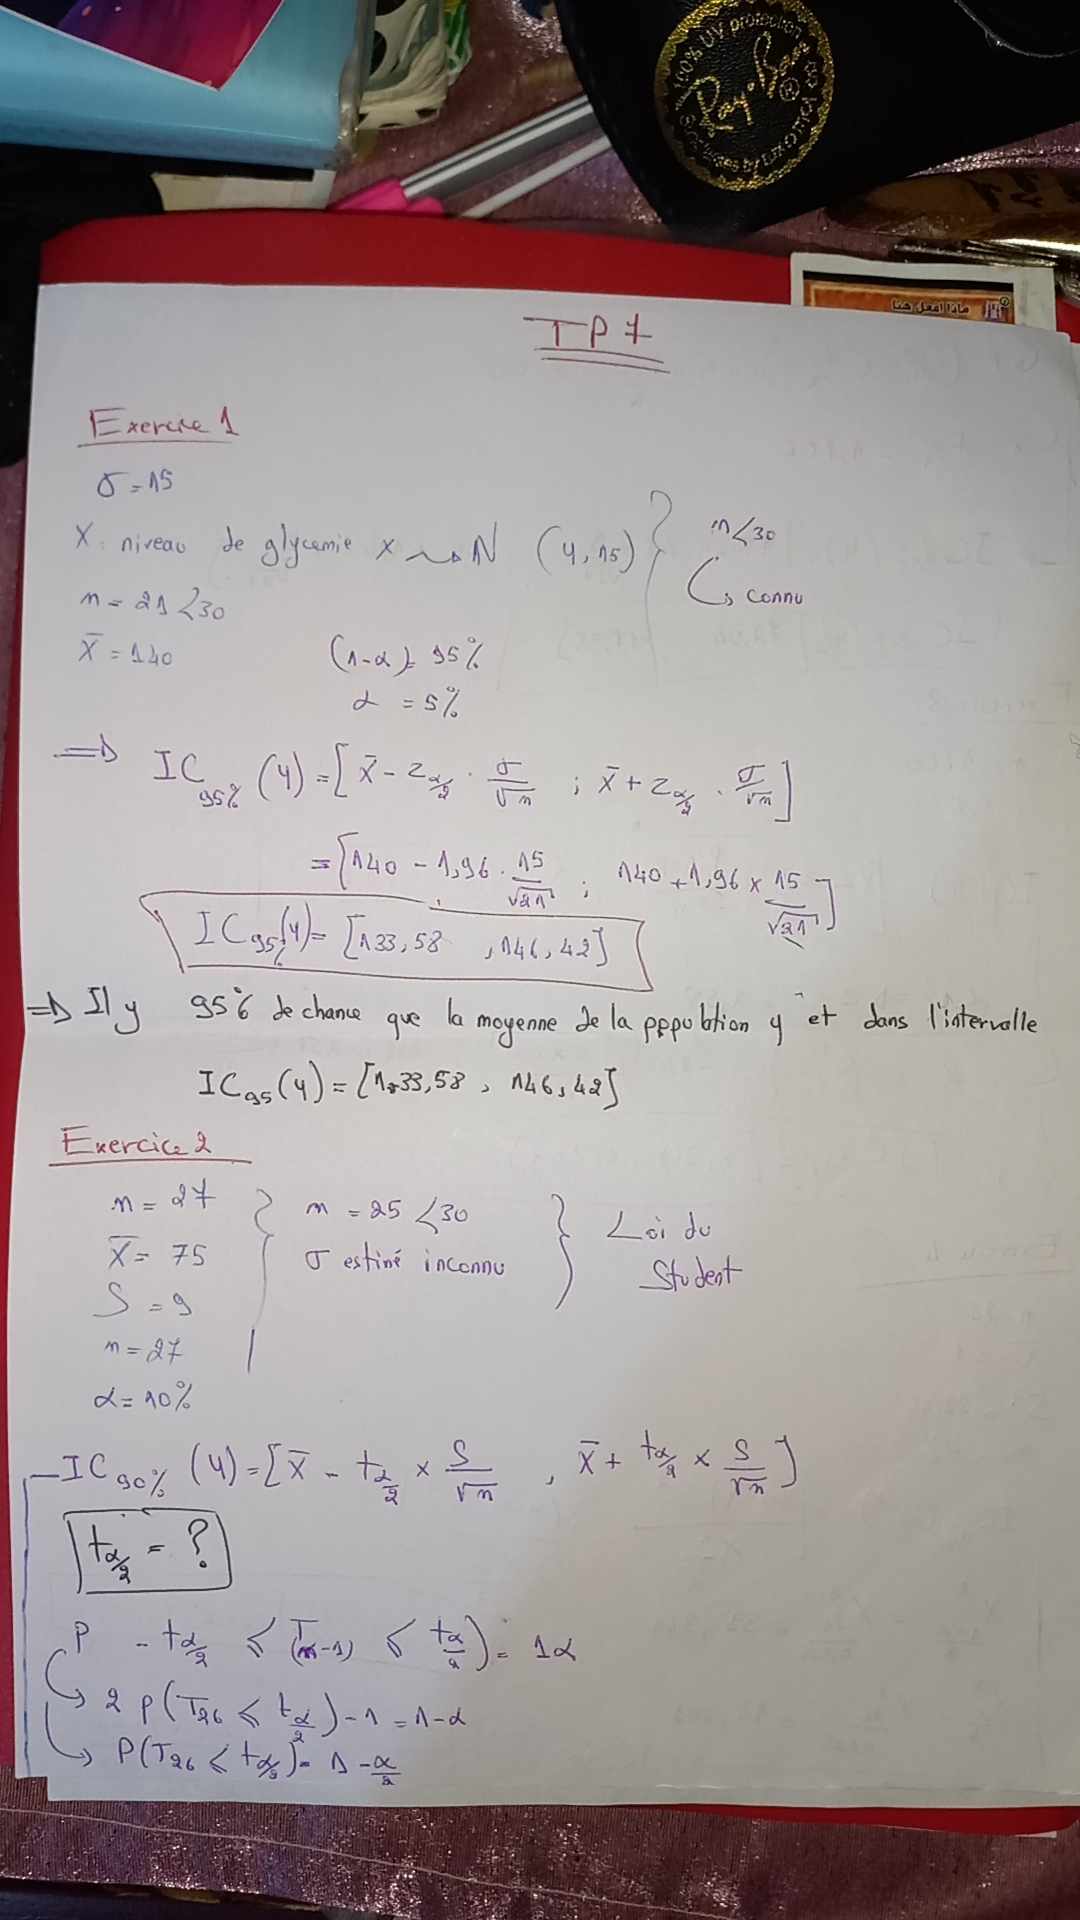 100% UV protection
Ray-Ban
®
by Luxottica
ماذا افعل هنا
TP 7
Exercice 1
σ = 15
X : niveau de glycemie X ~> N (μ, 15)
n < 30
↳ connu
n = 21 < 30
X̄ = 140
(1-α) = 95%
α = 5%
=> IC95% (μ) = [X̄ - Zα/2 · σ/√n ; X̄ + Zα/2 · σ/√n]
= [140 - 1,96 · 15/√21 ; 140 + 1,96 × 15/√21]
IC95%(μ) = [133,58 , 146,42]
=> Il y 95% de chance que la moyenne de la pppulation μ et dans l'intervalle
IC95 (μ) = [133,58 , 146,42]
Exercice 2
n = 27
X̄ = 75
S = 9
n = 27
α = 10%
n = 25 < 30
σ estimé inconnu
Loi du
Student
IC90% (μ) = [X̄ - tα/2 × S/√n , X̄ + tα/2 × S/√n]
tα/2 = ?
P - tα/2 ≤ T(n-1) ≤ tα/2) = 1α
→ 2 P(T26 ≤ tα/2) - 1 = 1-α
→ P(T26 ≤ tα/2) = 1 - α/2